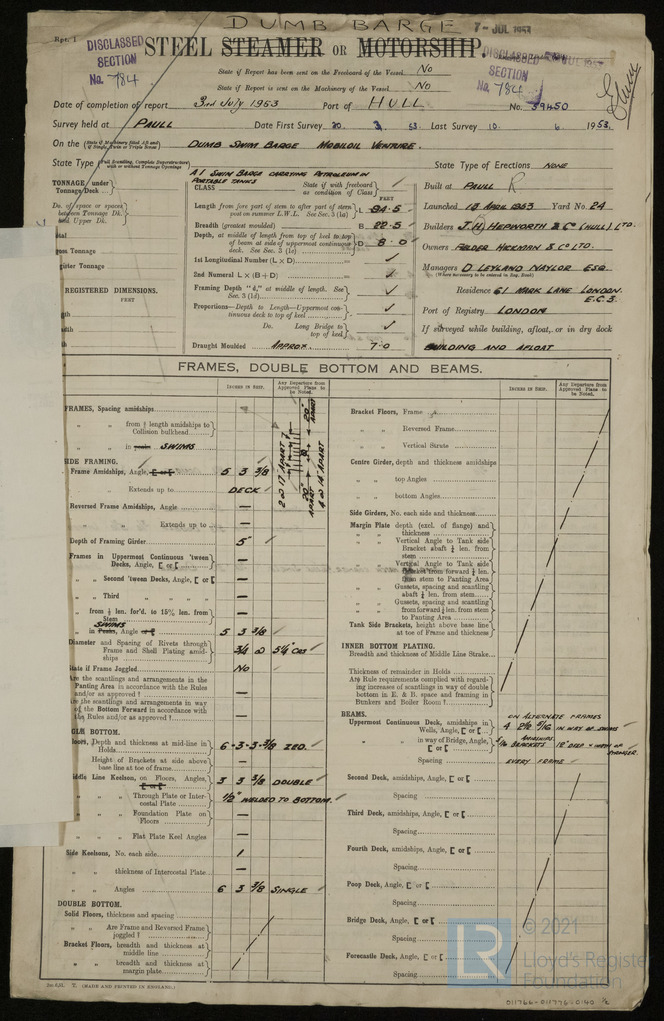 DUMB BARGE
7 - JUL 1953
Rpt. 1
DISCLASSED
SECTION
No. 784
STEEL STEAMER OR MOTORSHIP.
DISCLASSED
SECTION
No. 784
State if Report has been sent on the Freeboard of the Vessel No
State if Report is sent on the Machinery of the Vessel No
Date of completion of report 3rd July 1953 Port of HULL No. 59450
Survey held at PAULL Date First Survey 20. 3. 53. Last Survey 10. 6 1953.
On the (State if Machinery fitted Aft and if Single, Twin or Triple Screw) DUMB SWIM BARGE MOBILOIL VENTURE.
State Type (Full Scantling, Complete Superstructure with or without Tonnage Openings) A1 SWIM BARGE CARRYING PETROLEUM IN PORTABLE TANKS State Type of Erections NONE
TONNAGE under Tonnage Deck
Do. of space or spaces between Tonnage Dk. and Upper Dk.
REGISTERED DIMENSIONS.
FEET
CLASS State if with freeboard as condition of Class
FEET
Length from fore part of stem to after part of stern post on summer L.W.L. See Sec. 3 (1a) L 84.5
Breadth (greatest moulded) B 22.5
Depth, at middle of length from top of keel to top of beam at side of uppermost continuous deck. See Sec. 3 (1c) D 8.0
1st Longitudinal Number (L × D)
2nd Numeral L × (B + D)
Framing Depth "d," at middle of length. See Sec. 3 (1d)
Proportions—Depth to Length—Uppermost continuous deck to top of keel
Do. Long Bridge to top of keel
Draught Moulded APPROX. 7.0
Built at PAULL
Launched 18 APRIL 1953 Yard No. 24
Builders J.H. HEPWORTH & Co (HULL) LTD.
Owners HICKMAN & Co LTD.
Managers D LEYLAND NAYLOR ESQ
(Where necessary to be entered in Reg. Book)
Residence 61 MARK LANE LONDON. E.C.3.
Port of Registry LONDON
If surveyed while building, afloat, or in dry dock
BUILDING AND AFLOAT
FRAMES, DOUBLE BOTTOM AND BEAMS.
INCHES IN SHIP.
Any Departure from Approved Plans to be Noted.
FRAMES, Spacing amidships
" " from ⅕ length amidships to Collision bulkhead
" " in peaks SWIMS
SIDE FRAMING.
Frame Amidships, Angle, [ or [ 5 3 3/8
" " Extends up to DECK
Reversed Frame Amidships, Angle —
" " Extends up to —
Depth of Framing Girder 5
Frames in Uppermost Continuous 'tween Decks, Angle, [ or [ —
" " Second 'tween Decks, Angle, [ or [ —
" " Third " " —
" " from ⅕ len. for'd. to 15% len. from Stem —
" " in Peaks, SWIMS Angle or [ 5 3 3/8
Diameter and Spacing of Rivets through Frame and Shell Plating amidships 3/4 @ 5¼" CRS
State if Frame Joggled No
Are the scantlings and arrangements in the Panting Area in accordance with the Rules and/or as approved? —
Are the scantlings and arrangements in way of the Bottom Forward in accordance with the Rules and/or as approved? —
Floors, Depth and thickness at mid-line in Holds 6 · 3 · 3 · 3/8 ZED.
Height of Brackets at side above base line at toe of frame —
Middle Line Keelson, on Floors, Angles, [ or [ 3 3 3/8 DOUBLE
" " Through Plate or Intercostal Plate 1/2" WELDED TO BOTTOM.
" " Foundation Plate on Floors —
" " Flat Plate Keel Angles —
Side Keelsons, No. each side 1
" " thickness of Intercostal Plate —
" " Angles 6 3 3/8 SINGLE
DOUBLE BOTTOM.
Solid Floors, thickness and spacing
" " Are Frame and Reversed Frame joggled?
Bracket Floors, breadth and thickness at middle line
" " breadth and thickness at margin plate
Bracket Floors, Frame
" " Reversed Frame
" " Vertical Struts
Centre Girder, depth and thickness amidships
" " top Angles
" " bottom Angles
Side Girders, No. each side and thickness
Margin Plate depth (excl. of flange) and thickness
" " Vertical Angle to Tank side Bracket abaft ¼ len. from stem
" " Vertical Angle to Tank side Bracket from forward ¼ len. from stem to Panting Area
" " Gussets, spacing and scantling abaft ¼ len. from stem
" " Gussets, spacing and scantling from forward ¼ len. from stem to Panting Area
Tank Side Brackets, height above base line at toe of Frame and thickness
INNER BOTTOM PLATING.
Breadth and thickness of Middle Line Strake
Thickness of remainder in Holds
Are Rule requirements complied with regarding increases of scantlings in way of double bottom in E. & B. space and framing in Bunkers and Boiler Room?
BEAMS.
ON ALTERNATE FRAMES
Uppermost Continuous Deck, amidships in Wells, Angle, [ or [ 4 2½ 5/16 IN WAY OF SWIMS
" " in way of Bridge, Angle, [ or [ AMIDSHIPS 5/16 BRACKETS 12" DEEP
Spacing EVERY FRAME
Second Deck, amidships, Angle, [ or [
Spacing
Third Deck, amidships, Angle, [ or [
Spacing
Fourth Deck, amidships, Angle, [ or [
Spacing
Poop Deck, Angle, [ or [
Spacing
Bridge Deck, Angle, [ or [
Spacing
Forecastle Deck, Angle, [ or [
Spacing
(MADE AND PRINTED IN ENGLAND.)
LR
© 2021
Lloyd's Register
Foundation
011766-011776-0140 1/2